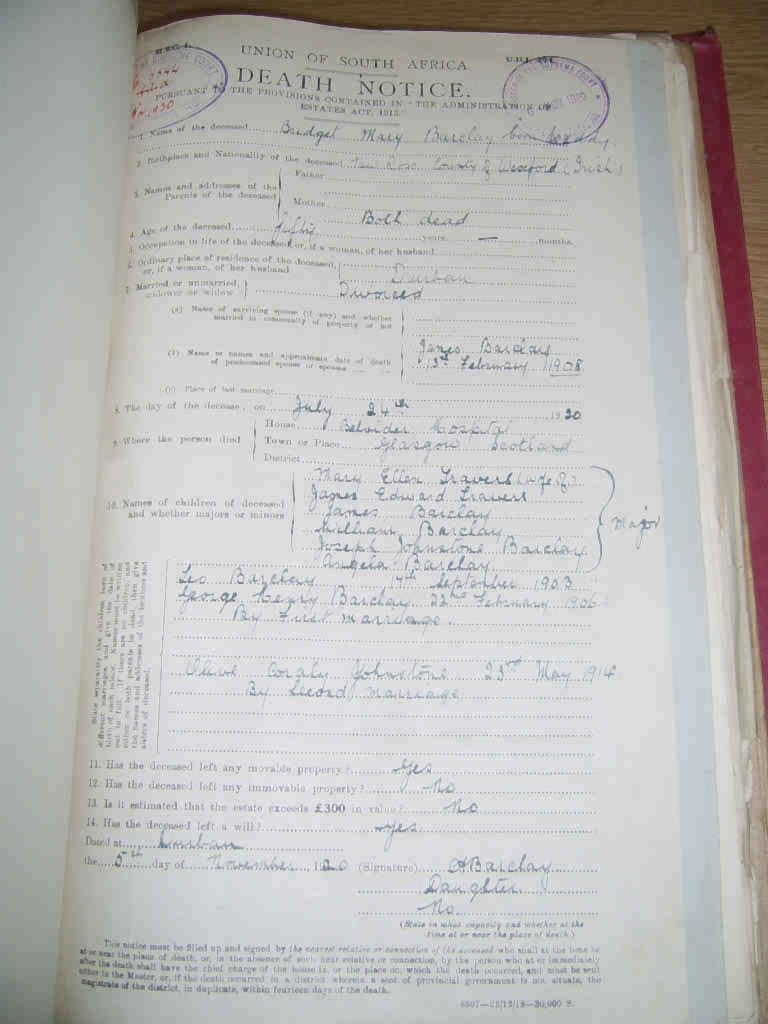 M.S.C. 1.
UNION OF SOUTH AFRICA.
DEATH NOTICE.
PURSUANT TO THE PROVISIONS CONTAINED IN "THE ADMINISTRATION OF
ESTATES ACT, 1913."
1. Name of the deceased Bridget Mary Barclay born
2. Birthplace and Nationality of the deceased New Ross County of Wexford (Irish)
3. Names and addresses of the Parents of the deceased
Father
Mother
Both dead
4. Age of the deceased fifty years — months.
5. Occupation in life of the deceased, or, if a woman, of her husband
6. Ordinary place of residence of the deceased, or, if a woman, of her husband
Durban
7. Married or unmarried, widower or widow
Divorced
(a) Name of surviving spouse (if any) and whether married in community of property or not
(b) Name or names and approximate date of death of predeceased spouse or spouses
James Barclay
13th February 1908
(c) Place of last marriage
8. The day of the decease, on July 24th 1920
9. Where the person died
House Belvider Hospital
Town or Place Glasgow Scotland
District
10. Names of children of deceased and whether majors or minors
Mary Ellen Travers (wife of)
James Edward Travers
James Barclay
William Barclay
Joseph Johnstone Barclay
Angela Barclay
Major
Leo Barclay 17th September 1903
George Henry Barclay 22nd February 1906
By First marriage
Johnstone 23rd May 1914
By Second Marriage
State separately the children born of
different marriages and give the date of
birth of each minor. Names must be written
out in full. If there are no children, and
either or both parents be dead, then give
the names and addresses of the brothers and
sisters of deceased.
11. Has the deceased left any movable property? Yes
12. Has the deceased left any immovable property? No
13. Is it estimated that the estate exceeds £300 in value? No
14. Has the deceased left a will? Yes
Dated at Durban
the 5th day of November 1920 (Signature) A Barclay
Daughter
No
(State in what capacity and whether at the
time at or near the place of death.)
This notice must be filled up and signed by the nearest relative or connection of the deceased who shall at the time be
at or near the place of death, or, in the absence of such near relative or connection, by the person who at or immediately
after the death shall have the chief charge of the house in, or the place on, which the death occurred, and must be sent
either to the Master, or, if the death occurred in a district wherein a seat of provincial government is not situate, the
magistrate of the district, in duplicate, within fourteen days of the death.